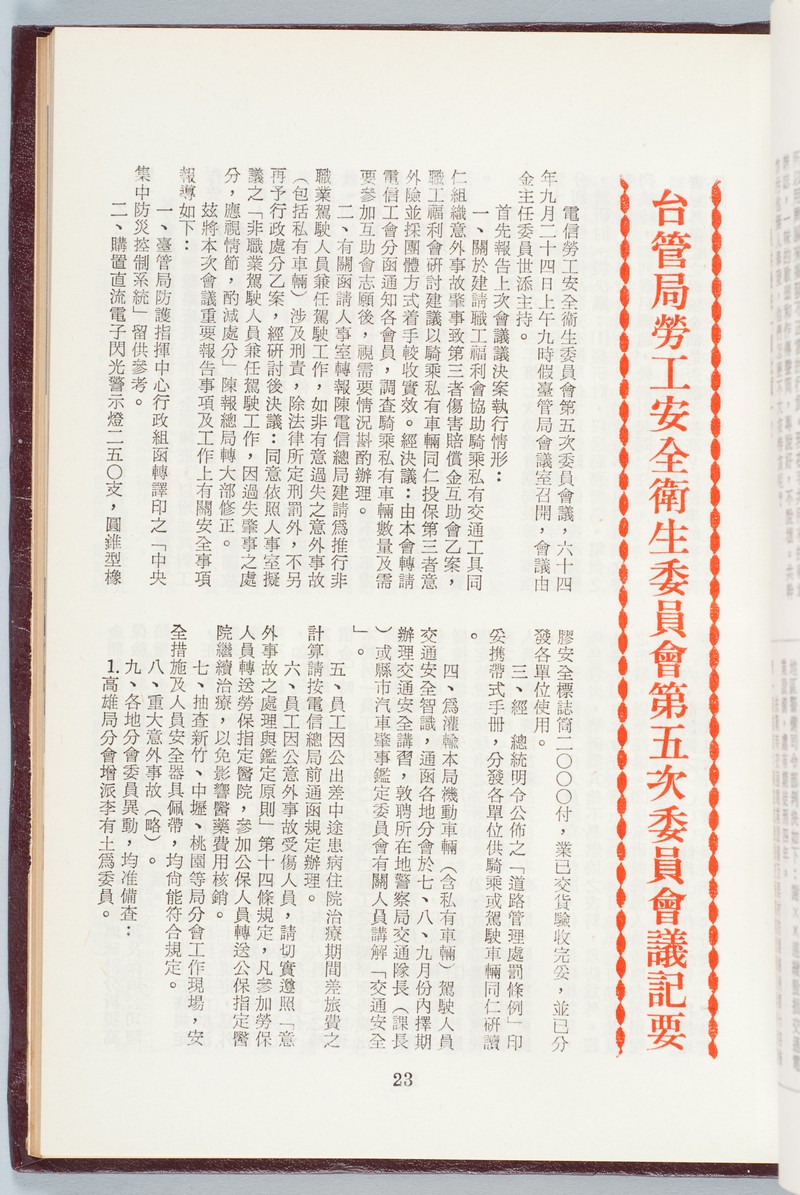 台管局勞工安全衛生委員會第五次委員會議記要
電信勞工安全衛生委員會第五次委員會議，六十四
年九月二十四日上午九時假臺管局會議室召開，會議由
金主任委員世添主持。
首先報告上次會議議決案執行情形：
一、關於建請職工福利會協助騎乘私有交通工具同
仁組織意外事故肇事致第三者傷害賠償金互助會乙案，
職工福利會研討建議以騎乘私有車輛同仁投保第三者意
外險並採團體方式着手較收實效。經決議：由本會轉請
電信工會分函通知各會員，調查騎乘私有車輛數量及需
要參加互助會志願後，視需要情況斟酌辦理。
二、有關函請人事室轉報陳電信總局建請爲推行非
職業駕駛人員兼任駕駛工作，如非有意過失之意外事故
（包括私有車輛）涉及刑責，除法律所定刑罰外，不另
再予行政處分乙案，經研討後決議：同意依照人事室擬
議之「非職業駕駛人員兼任駕駛工作，因過失肇事之處
分，應視情節，酌減處分」陳報總局轉大部修正。
玆將本次會議重要報告事項及工作上有關安全事項
報導如下：
一、臺管局防護指揮中心行政組函轉譯印之「中央
集中防災控制系統」留供參考。
二、購置直流電子閃光警示燈二五〇支，圓錐型橡
膠安全標誌筒二〇〇〇付，業已交貨驗收完妥，並已分
發各單位使用。
三、經　總統明令公佈之「道路管理處罰條例」印
妥携帶式手册，分發各單位供騎乘或駕駛車輛同仁研讀
。
四、爲灌輸本局機動車輛（含私有車輛）駕駛人員
交通安全智識，通函各地分會於七、八、九月份內擇期
辦理交通安全講習，敦聘所在地警察局交通隊長（課長
）或縣市汽車肇事鑑定委員會有關人員講解「交通安全
」。
五、員工因公出差中途患病住院治療期間差旅費之
計算請按電信總局前通函規定辦理。
六、員工因公意外事故受傷人員，請切實遵照「意
外事故之處理與鑑定原則」第十四條規定，凡參加勞保
人員轉送勞保指定醫院，參加公保人員轉送公保指定醫
院繼續治療，以免影響醫藥費用核銷。
七、抽查新竹、中壢、桃園等局分會工作現場，安
全措施及人員安全器具佩帶，均尙能符合規定。
八、重大意外事故（略）。
九、各地分會委員異動，均准備查：
1.高雄局分會增派李有土爲委員。
23